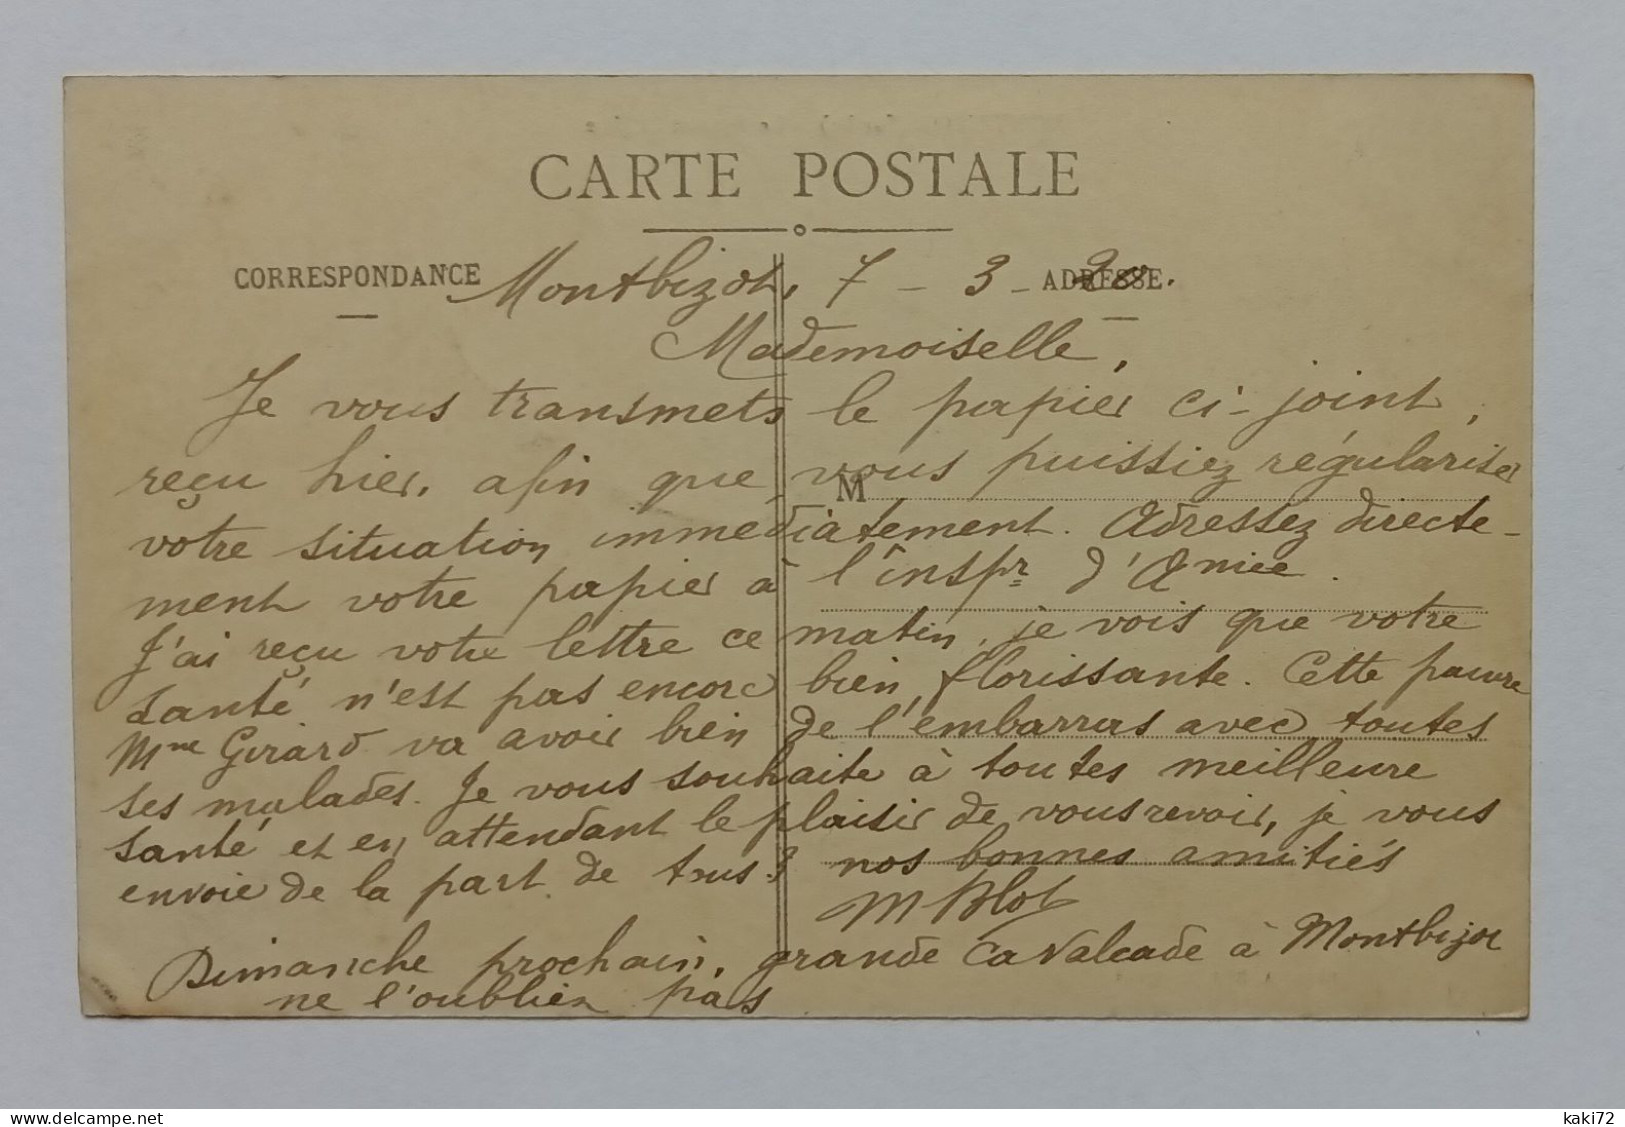 CARTE POSTALE
CORRESPONDANCE
ADRESSE.
Montbizot, 7 - 3 - 20
Mademoiselle,
Je vous transmets le papier ci-joint,
reçu hier, afin que vous puissiez régulariser
M
votre situation immédiatement. Adressez directe-
ment votre papier à l'inspr d'Amiée.
J'ai reçu votre lettre ce matin, je vois que votre
santé n'est pas encore bien florissante. Cette pauvre
Mme Girard va avoir bien de l'embarras avec toutes
ses malades. Je vous souhaite à toutes meilleure
santé et en attendant le plaisir de vous revoir, je vous
envoie de la part de tous 3 nos bonnes amitiés
M Blot
Dimanche prochain, grande CaValcade à Montbizot
ne l'oubliez pas
www.delcampe.net
kaki72